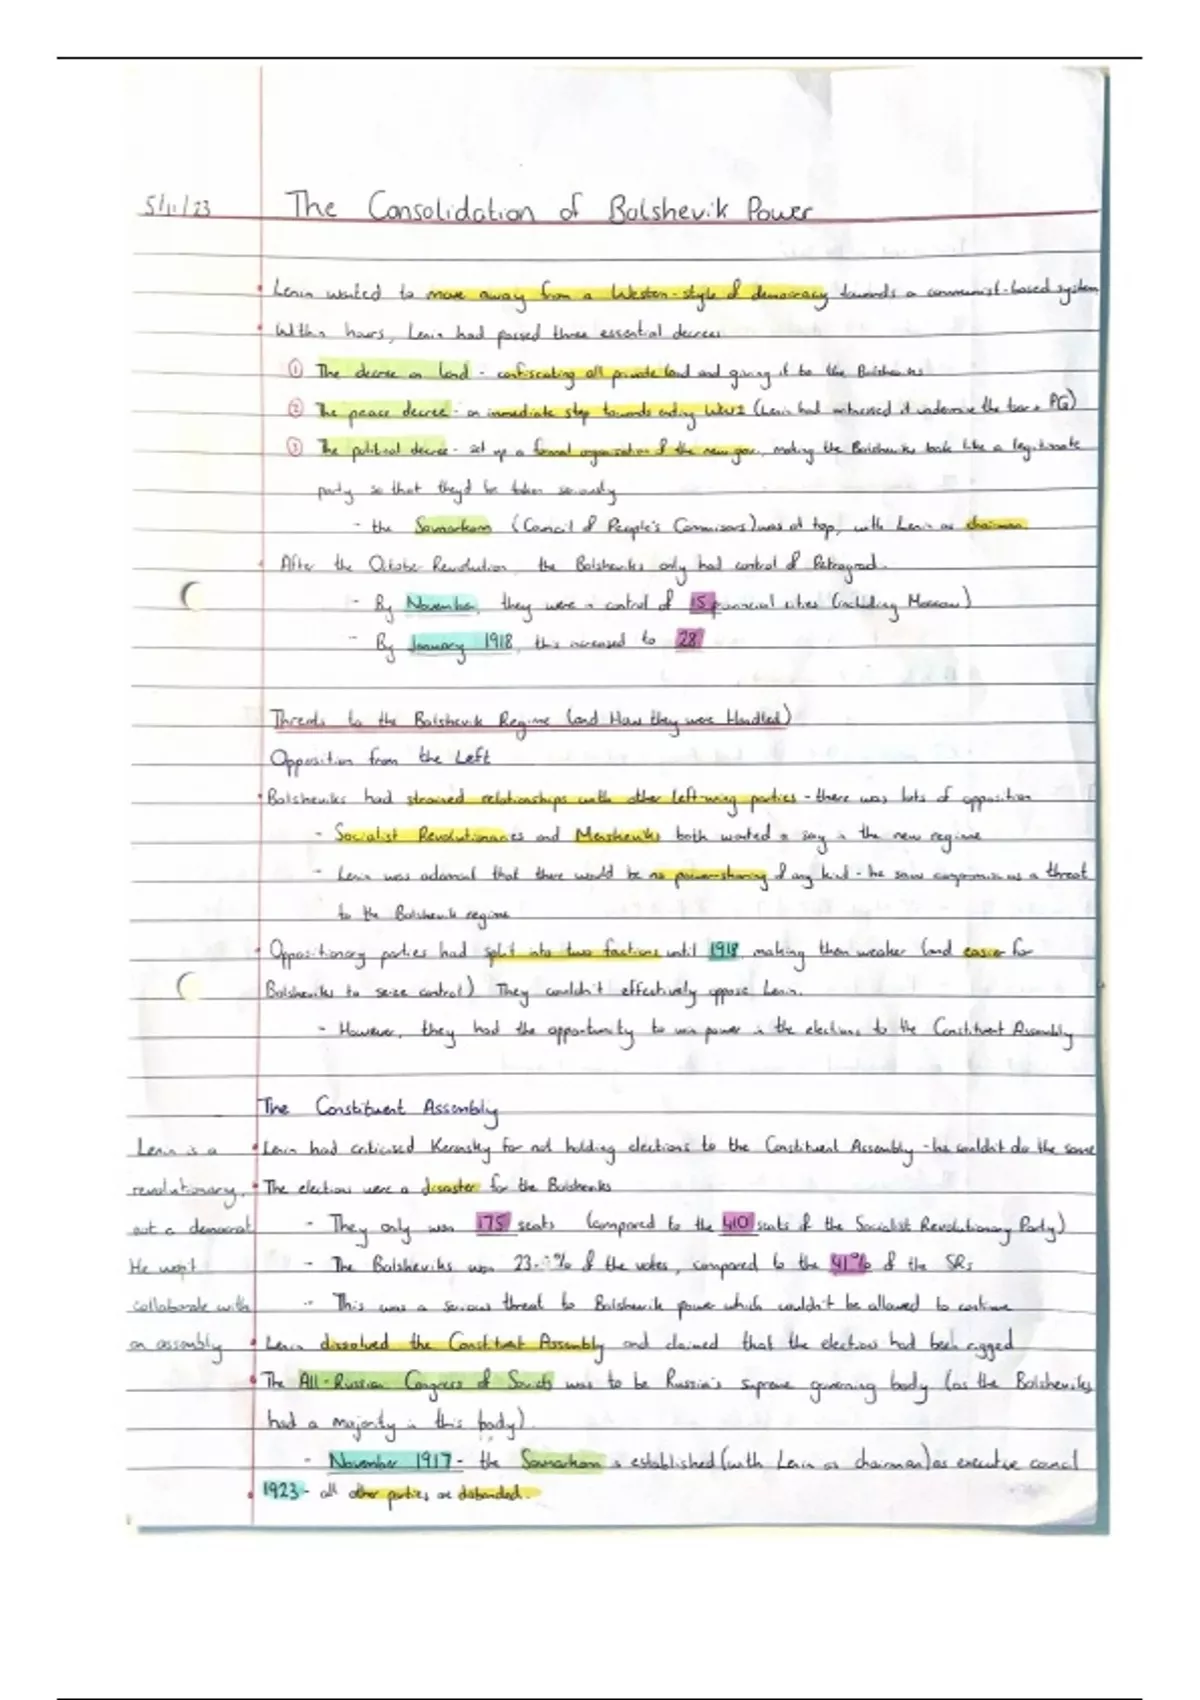 5/11/23 The Consolidation of Bolshevik Power
• Lenin wanted to move away from a Western-style of democracy towards a communist-based system
• Within hours, Lenin had passed three essential decrees
① The decree on land - confiscating all private land and giving it to the Bolsheviks
② The peace decree - an immediate step towards ending WW1 (Lenin had witnessed it undermine the tsar + PG)
③ The political decree - set up a formal organisation of the new gov., making the Bolsheviks look like a legitimate
party so that they'd be taken seriously
- the Sovnarkom (Council of People's Commisars) was at top, with Lenin as chairman.
• After the October Revolution, the Bolsheviks only had control of Petrograd.
- By November, they were in control of 15 provincial cities (including Moscow)
- By January 1918, this increased to 28
Threats to the Bolshevik Regime (and How they were Handled)
Opposition from the Left
• Bolsheviks had strained relationships with other left-wing parties - there was lots of opposition
- Socialist Revolutionaries and Mensheviks both wanted a say in the new regime
- Lenin was adamant that there would be no power-sharing of any kind - he saw compromise as a threat
to the Bolshevik regime
• Oppositionary parties had split into two factions until 1918, making them weaker (and easier for
Bolsheviks to seize control) They couldn't effectively oppose Lenin.
- However, they had the opportunity to win power in the elections to the Constituent Assembly
The Constituent Assembly
Lenin is a • Lenin had criticised Kerensky for not holding elections to the Constituent Assembly - he couldn't do the same
revolutionary, • The elections were a disaster for the Bolsheviks
not a democrat - They only won 175 seats (compared to the 410 seats of the Socialist Revolutionary Party)
He won't - The Bolsheviks won 23. % of the votes, compared to the 41% of the SRs
collaborate with - This was a serious threat to Bolshevik power which couldn't be allowed to continue
an assembly • Lenin dissolved the Constituent Assembly and claimed that the elections had been rigged
• The All-Russian Congress of Soviets was to be Russia's supreme governing body (as the Bolsheviks
had a majority in this body).
- November 1917 - the Sovnarkom is established (with Lenin as chairman) as executive council
• 1923 - all other parties are disbanded.